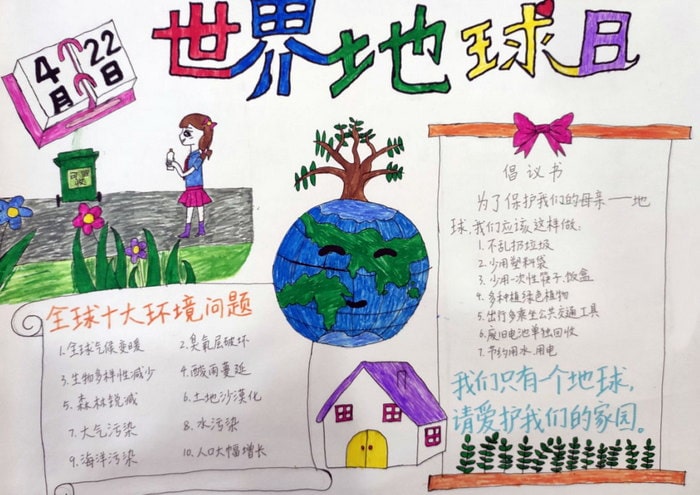 世界地球日
4月22日
可回收
全球十大环境问题
1.全球气候变暖 2.臭氧层破坏
3.生物多样性减少 4.酸雨蔓延
5.森林锐减 6.土地沙漠化
7.大气污染 8.水污染
9.海洋污染 10.人口大幅增长
倡议书
为了保护我们的母亲——地
球,我们应该这样做:
1.不乱扔垃圾
2.少用塑料袋
3.少用一次性筷子、饭盒
4.多种植绿色植物
5.出行多乘坐公共交通工具
6.废旧电池单独回收
7.节约用水、用电
我们只有一个地球,
请爱护我们的家园。